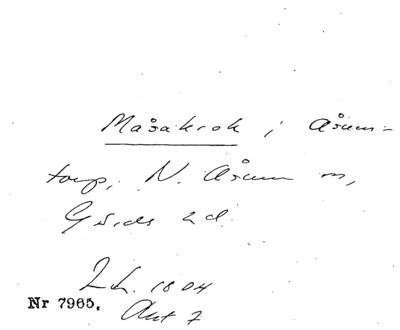 Måsakrok i Åsum-
torp, N. Åsum sn,
Gärds hd.
LL. 1804
Nr 7965. Akt 7